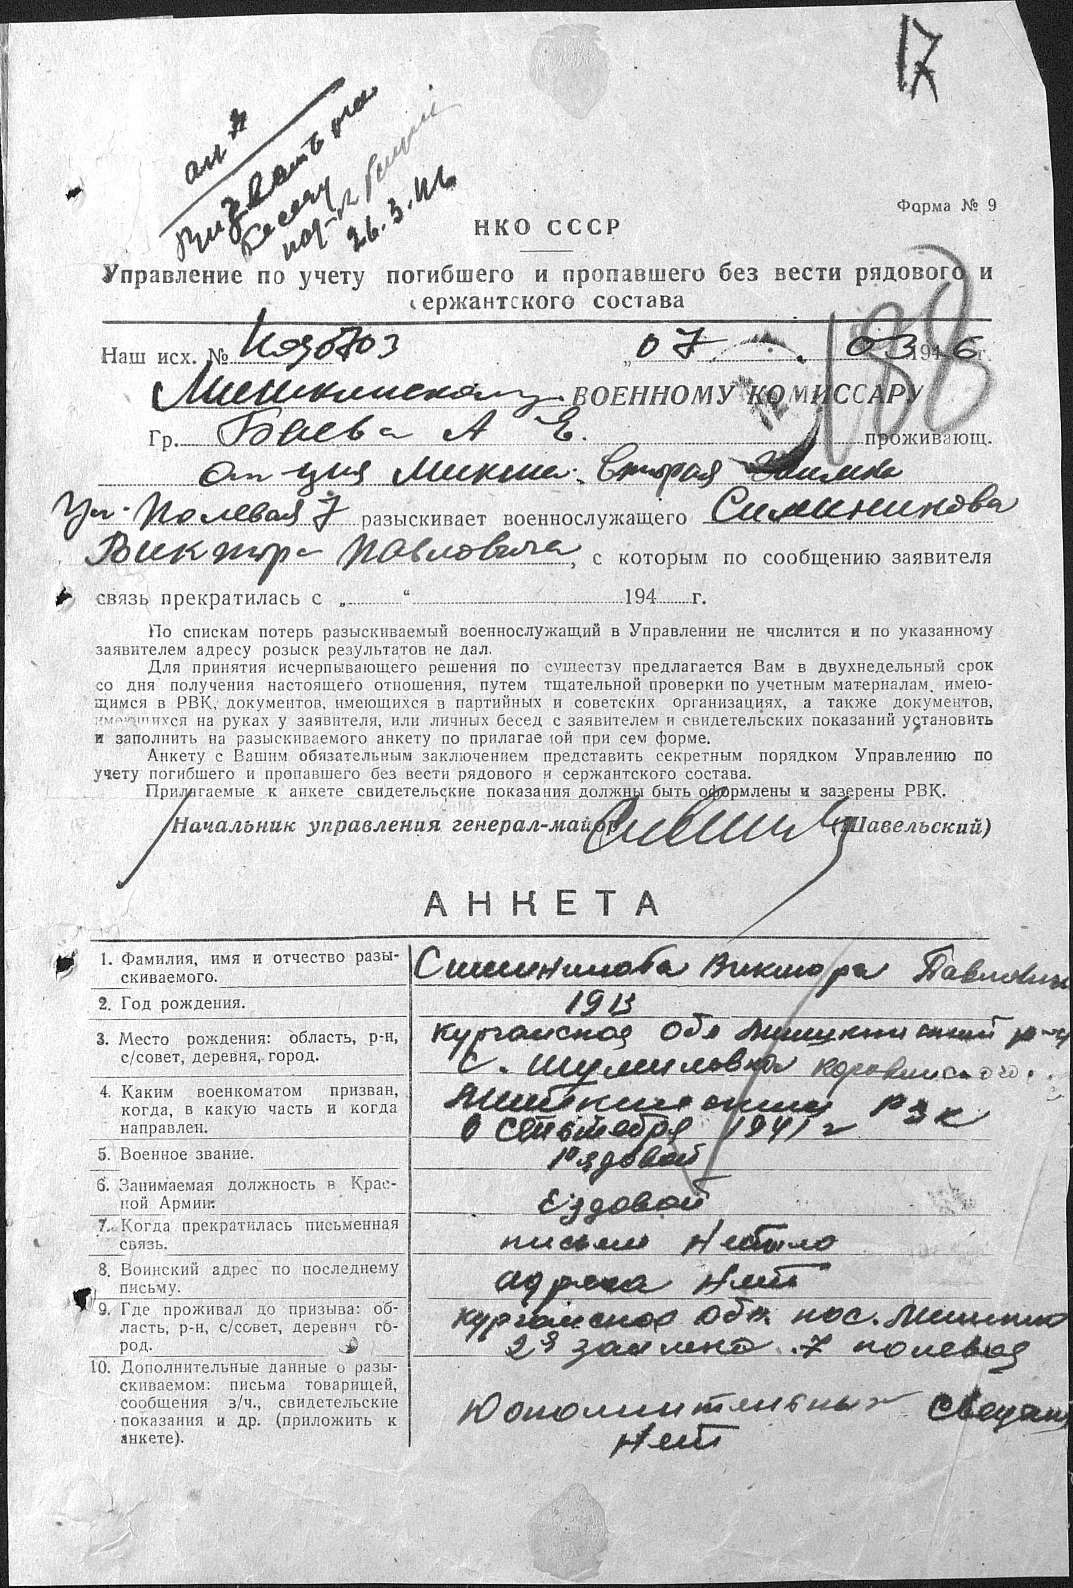 17
Вызвать на
беседу
26.3.46
Форма № 9
НКО СССР
Управление по учету погибшего и пропавшего без вести рядового и
сержантского состава
188
Наш исх. № 07. 03 1946 г.
Мишкинскому ВОЕННОМУ КОМИССАРУ
Гр. Баева А Е. проживающ.
ст-ция Вторая Заимка
Ул. Полевая 7 разыскивает военнослужащего
Виктора Павловича, с которым по сообщению заявителя
связь прекратилась с „ “ 194 г.
По спискам потерь разыскиваемый военнослужащий в Управлении не числится и по указанному
заявителем адресу розыск результатов не дал.
Для принятия исчерпывающего решения по существу предлагается Вам в двухнедельный срок
со дня получения настоящего отношения, путем тщательной проверки по учетным материалам, имею-
щимся в РВК, документов, имеющихся в партийных и советских организациях, а также документов,
имеющихся на руках у заявителя, или личных бесед с заявителем и свидетельских показаний установить
и заполнить на разыскиваемого анкету по прилагаемой при сем форме.
Анкету с Вашим обязательным заключением представить секретным порядком Управлению по
учету погибшего и пропавшего без вести рядового и сержантского состава.
Прилагаемые к анкете свидетельские показания должны быть оформлены и заверены РВК.
Начальник управления генерал-майор (Шавельский)
АНКЕТА
1. Фамилия, имя и отчество разы-
скиваемого.
Виктора Павлович
2. Год рождения.
1913
3. Место рождения: область, р-н,
с/совет, деревня, город.
Курганская Обл Мишкинский р-н
с. Шумиловка
4. Каким военкоматом призван,
когда, в какую часть и когда
направлен.
Мишкинским РВК
в сентября 1941 г
5. Военное звание.
Рядовой
6. Занимаемая должность в Крас-
ной Армии:
Ездовой
7. Когда прекратилась письменная
связь.
писем небыло
8. Воинский адрес по последнему
письму.
адреса нет
9. Где проживал до призыва: об-
ласть, р-н, с/совет, деревня го-
род.
Курганская Обл. пос. Мишкино
2я заимка 7 полевая
10. Дополнительные данные о разы-
скиваемом: письма товарищей,
сообщения з/ч., свидетельские
показания и др. (приложить к
анкете).
Дополнительных сведений
нет